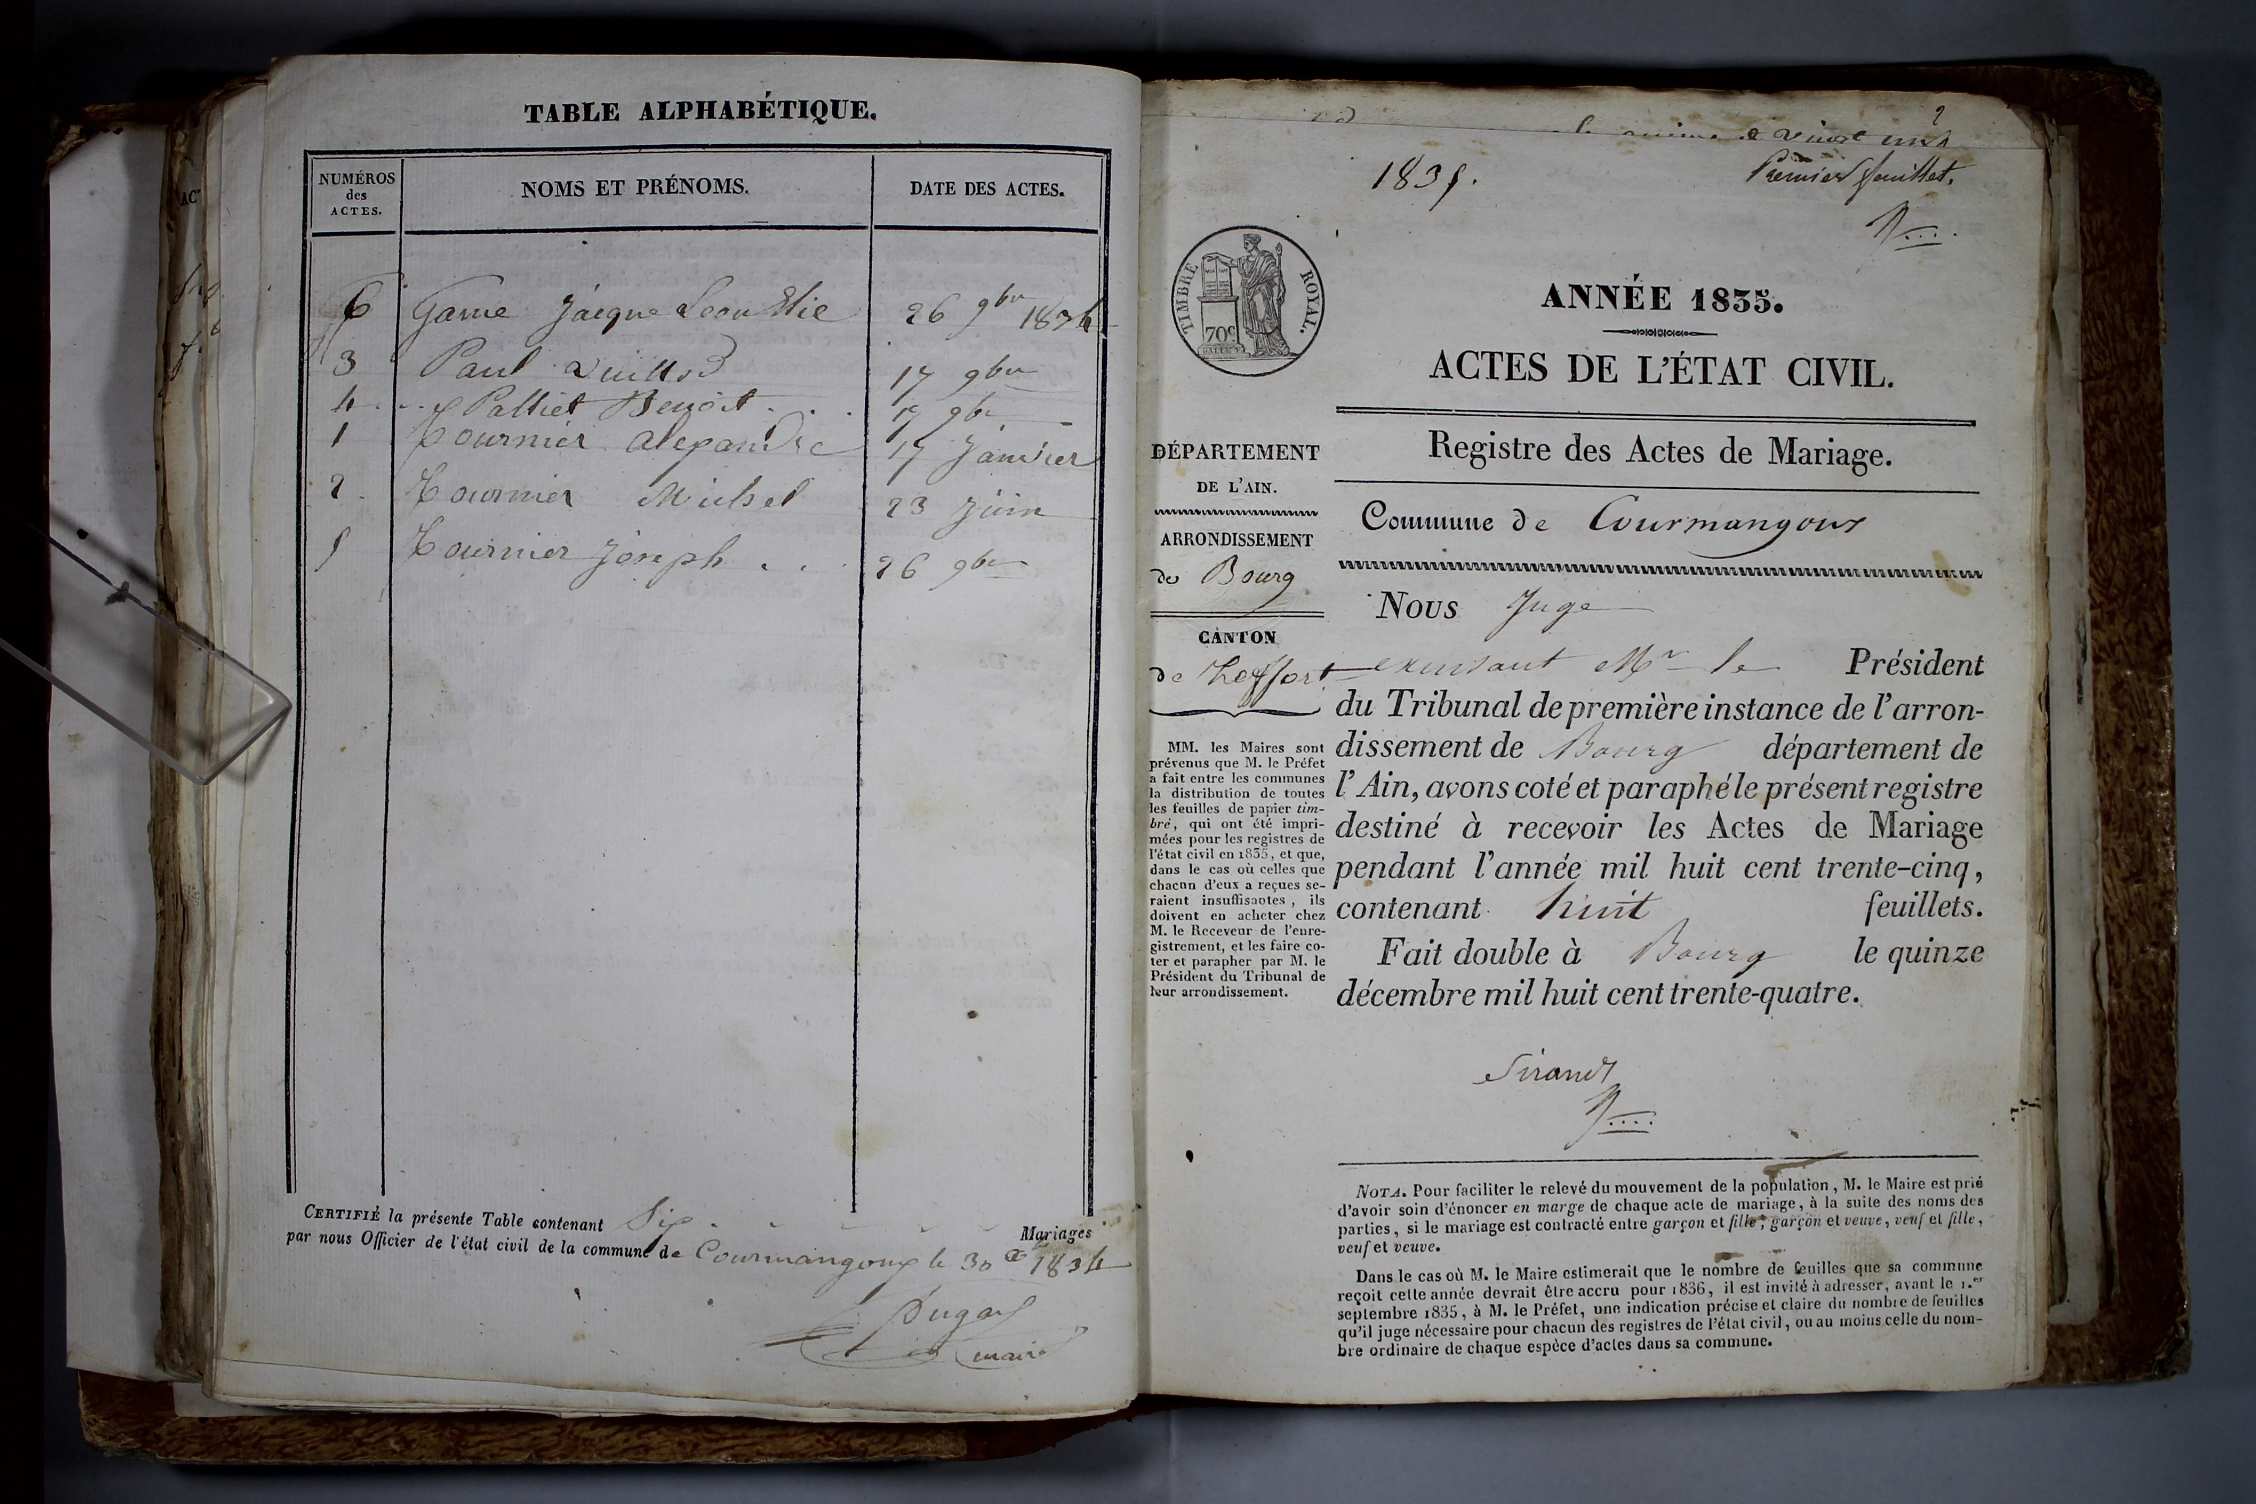 TABLE ALPHABÉTIQUE.
NUMÉROS
des
ACTES.
NOMS ET PRÉNOMS.
DATE DES ACTES.
6 Jacque Leon Elie 26 9bre 1834
3 Paul 17 9bre
4 Palliet Benoit 17 9bre
1 Tournier alexandre 17 Janvier
2 Tournier Michel 23 Juin
5 Tournier Joseph 26 9bre
CERTIFIÉ la présente Table contenant Six Mariages
par nous Officier de l'état civil de la commune de Courmangoux le 30 1834
maire
2
1835.
Premier feuillet.
TIMBRE ROYAL.
70c
ANNÉE 1835.
ACTES DE L'ÉTAT CIVIL.
Registre des Actes de Mariage.
Commune de Courmangoux
DÉPARTEMENT
DE L'AIN.
ARRONDISSEMENT
de Bourg
CANTON
de Treffort
MM. les Maires sont
prévenus que M. le Préfet
a fait entre les communes
la distribution de toutes
les feuilles de papier tim-
bré, qui ont été impri-
mées pour les registres de
l'état civil en 1835, et que,
dans le cas où celles que
chacun d'eux a reçues se-
raient insuffisantes, ils
doivent en acheter chez
M. le Receveur de l'enre-
gistrement, et les faire co-
ter et parapher par M. le
Président du Tribunal de
leur arrondissement.
Nous Juge
excusant Mr le Président
du Tribunal de première instance de l'arron-
dissement de Bourg département de
l'Ain, avons coté et paraphé le présent registre
destiné à recevoir les Actes de Mariage
pendant l'année mil huit cent trente-cinq,
contenant huit feuillets.
Fait double à Bourg le quinze
décembre mil huit cent trente-quatre.
Sirand
NOTA. Pour faciliter le relevé du mouvement de la population, M. le Maire est prié
d'avoir soin d'énoncer en marge de chaque acte de mariage, à la suite des noms des
parties, si le mariage est contracté entre garçon et fille, garçon et veuve, veuf et fille,
veuf et veuve.
Dans le cas où M. le Maire estimerait que le nombre de feuilles que sa commune
reçoit cette année devrait être accru pour 1836, il est invité à adresser, avant le 1.er
septembre 1835, à M. le Préfet, une indication précise et claire du nombre de feuilles
qu'il juge nécessaire pour chacun des registres de l'état civil, ou au moins celle du nom-
bre ordinaire de chaque espèce d'actes dans sa commune.